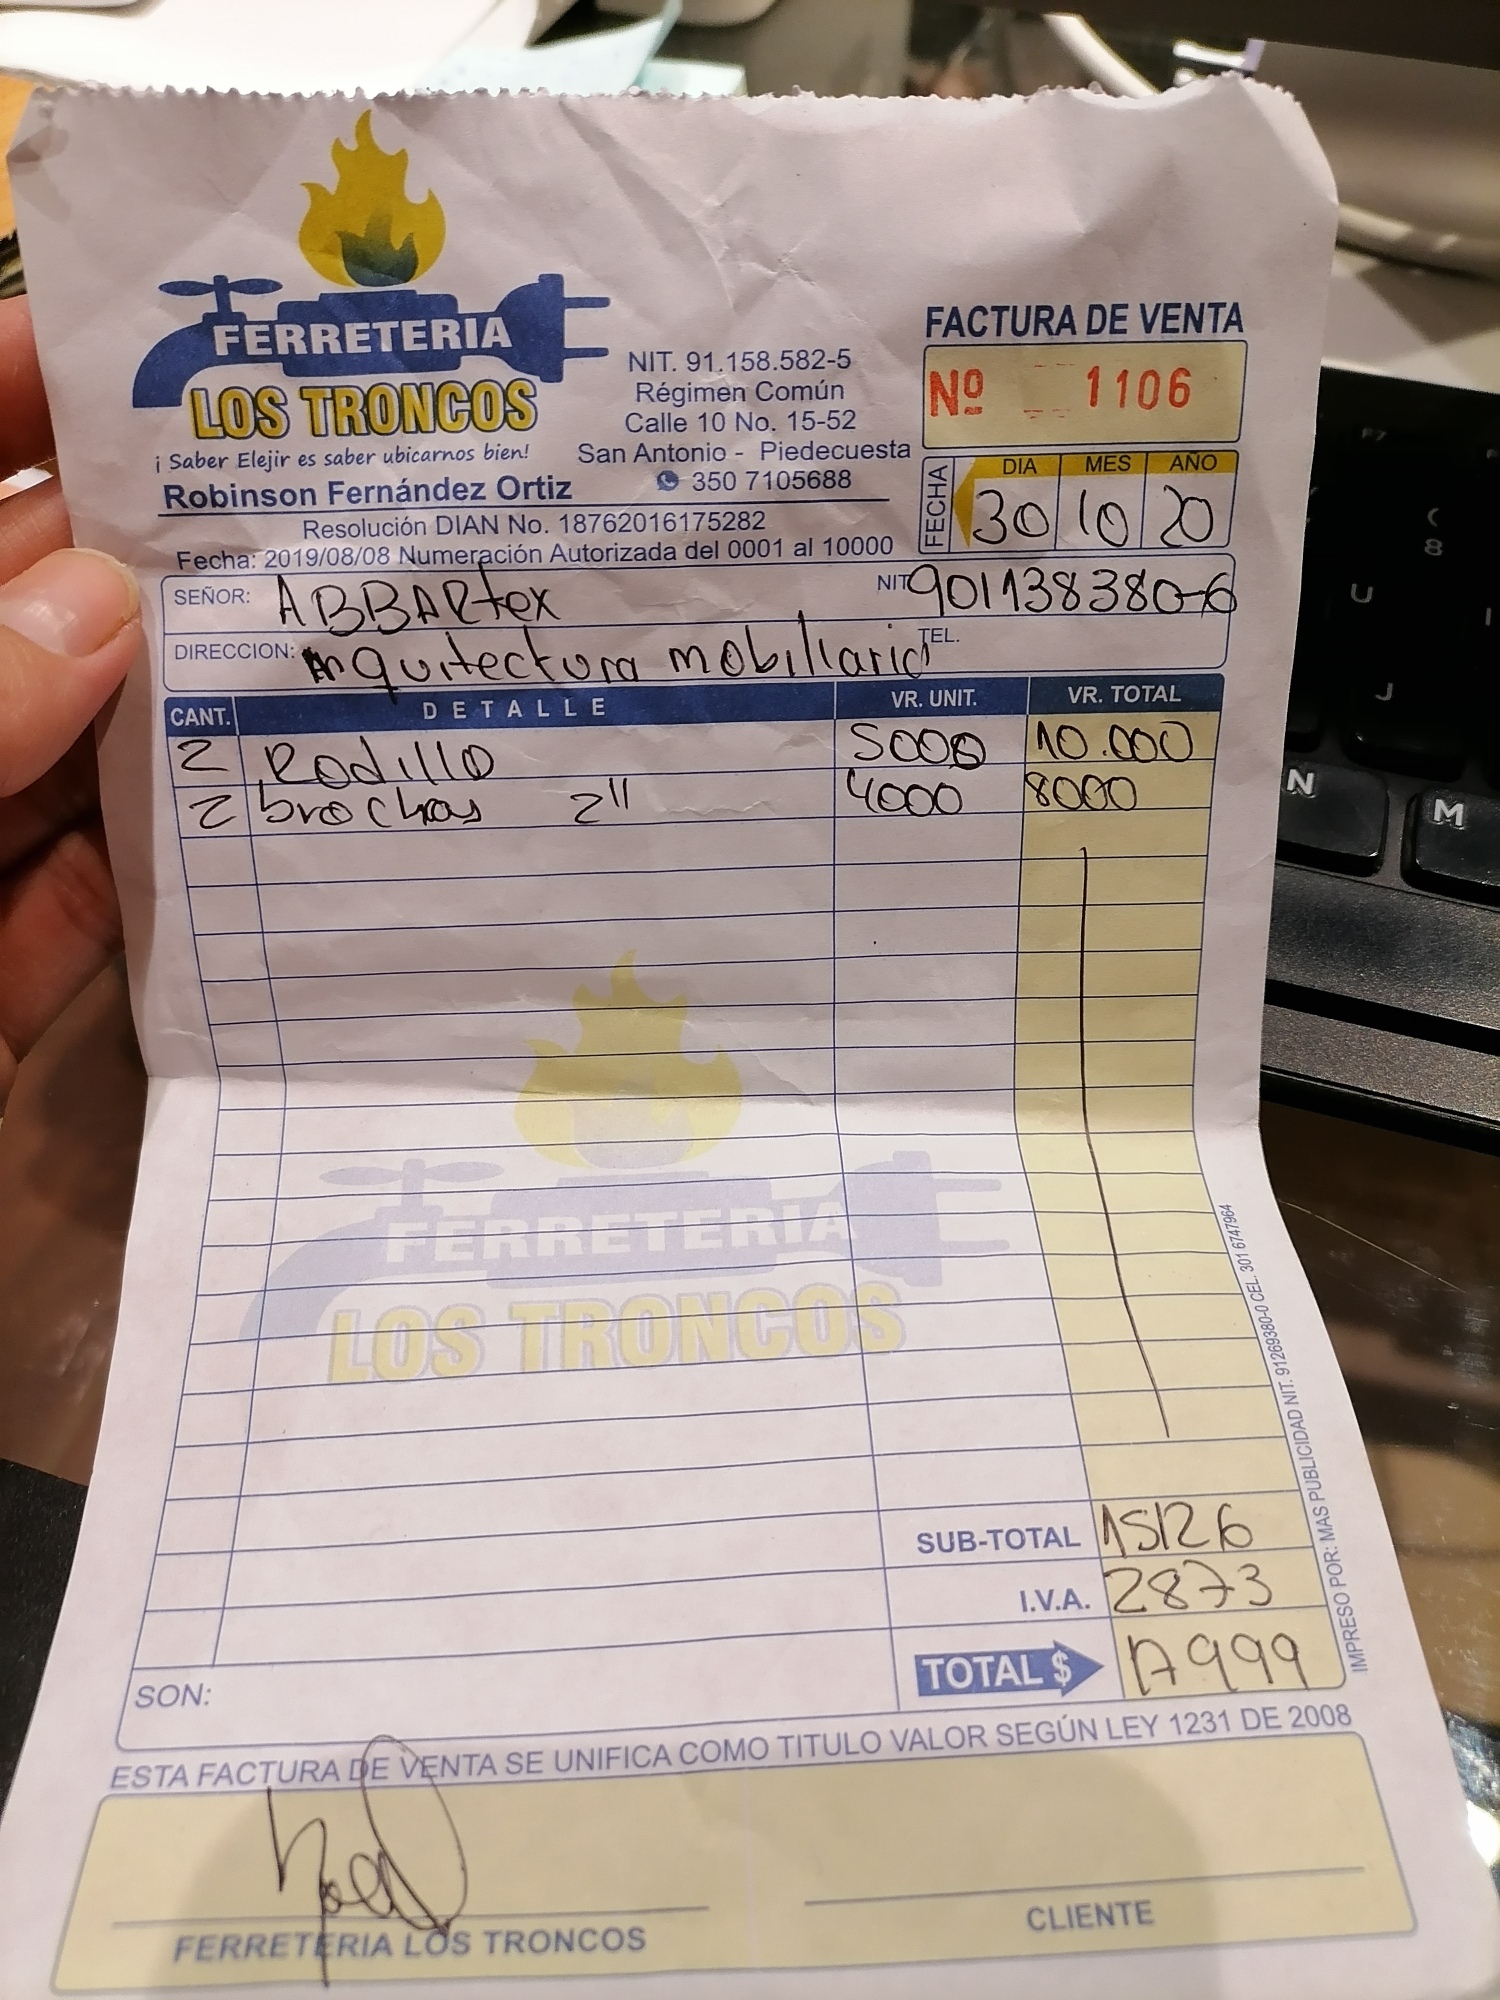 FERRETERIA
LOS TRONCOS
¡ Saber Elejir es saber ubicarnos bien!
Robinson Fernández Ortiz
NIT. 91.158.582-5
Régimen Común
Calle 10 No. 15-52
San Antonio - Piedecuesta
350 7105688
Resolución DIAN No. 18762016175282
Fecha: 2019/08/08 Numeración Autorizada del 0001 al 10000
FACTURA DE VENTA
Nº 1106
FECHA DIA MES AÑO
30 10 20
SEÑOR: ABBARtex NIT 901138380-6
DIRECCION: Arquitectura mobiliario TEL.
CANT. DETALLE VR. UNIT. VR. TOTAL
2 Rodillo 5000 10.000
2 brochas 2" 4000 8000
FERRETERIA
LOS TRONCOS
SUB-TOTAL 15126
I.V.A. 2873
TOTAL $ 17999
SON:
IMPRESO POR: MAS PUBLICIDAD NIT. 91269380-0 CEL. 301 6747964
ESTA FACTURA DE VENTA SE UNIFICA COMO TITULO VALOR SEGÚN LEY 1231 DE 2008
FERRETERIA LOS TRONCOS
CLIENTE
F7
8
U
J
N
M